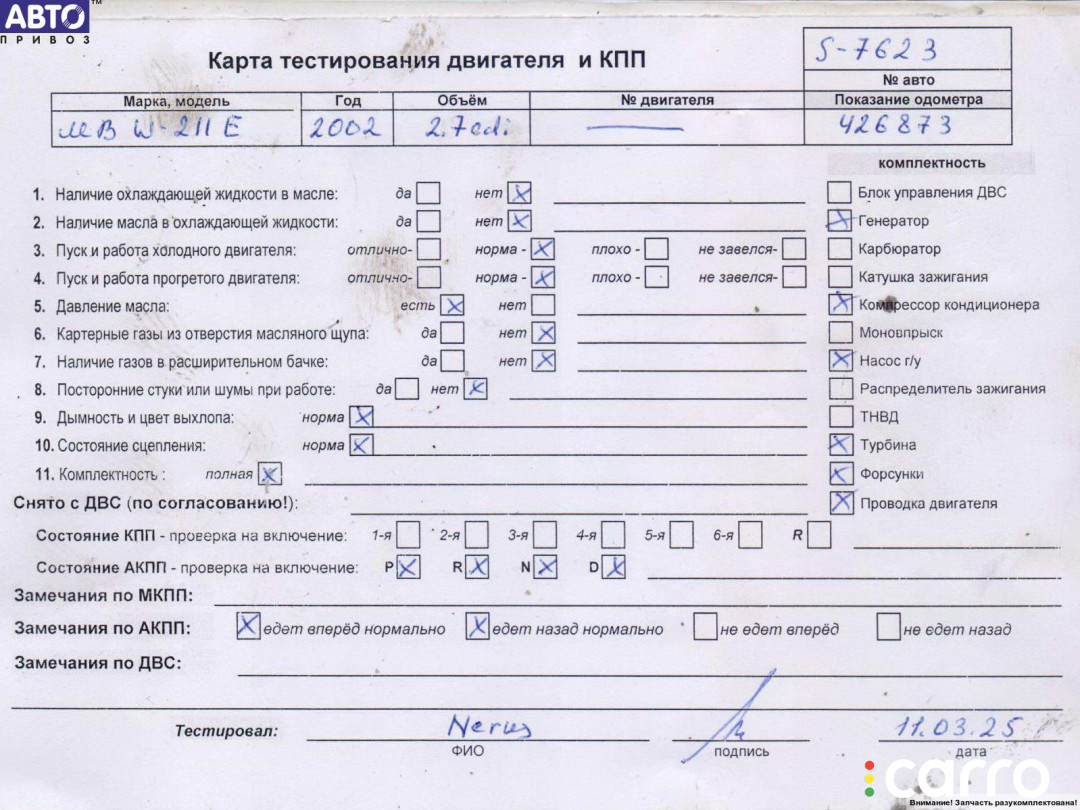 АВТО™
ПРИВОЗ
Карта тестирования двигателя и КПП
S-7623
№ авто
Марка, модель Год Объём № двигателя Показание одометра
MB W-211 E 2002 2.7cdi — 426873
комплектность
1. Наличие охлаждающей жидкости в масле: да нет X Блок управления ДВС
2. Наличие масла в охлаждающей жидкости: да нет X X Генератор
3. Пуск и работа холодного двигателя: отлично- норма - X плохо - не завелся- Карбюратор
4. Пуск и работа прогретого двигателя: отлично- норма - X плохо - не завелся- Катушка зажигания
5. Давление масла: есть X нет X Компрессор кондиционера
6. Картерные газы из отверстия масляного щупа: да нет X Моновпрыск
7. Наличие газов в расширительном бачке: да нет X X Насос г/у
8. Посторонние стуки или шумы при работе: да нет X Распределитель зажигания
9. Дымность и цвет выхлопа: норма X ТНВД
10. Состояние сцепления: норма X X Турбина
11. Комплектность : полная X X Форсунки
Снято с ДВС (по согласованию!): X Проводка двигателя
Состояние КПП - проверка на включение: 1-я 2-я 3-я 4-я 5-я 6-я R
Состояние АКПП - проверка на включение: P X R X N X D X
Замечания по МКПП:
Замечания по АКПП: X едет вперёд нормально X едет назад нормально не едет вперёд не едет назад
Замечания по ДВС:
Тестировал: Nerus 11.03.25
ФИО подпись дата
carro
Внимание! Запчасть разукомплектована!